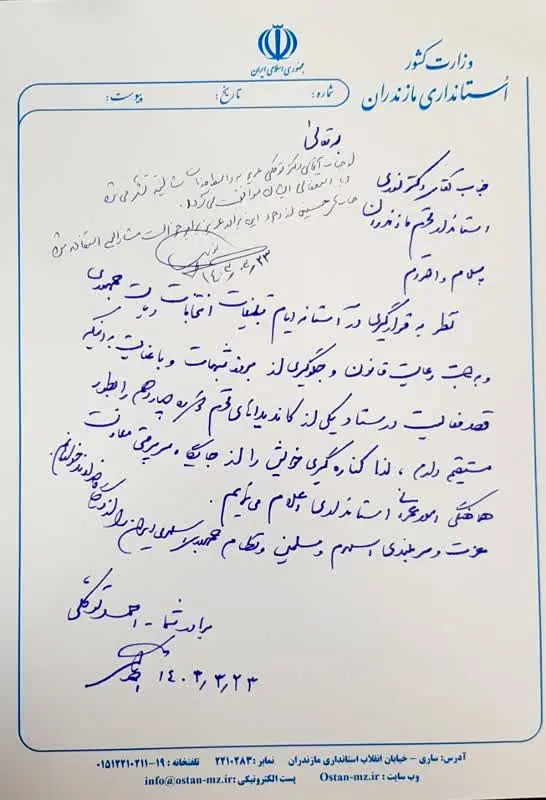 جمهوری اسلامی ایران
وزارت کشور
استانداری مازندران
شماره: تاریخ: پیوست:
بسمه تعالی
جناب آقای دکتر نوری
استاندار محترم مازندران
جناب آقای دکتر توکلی عزیز
با انتقالی ایشان موافقت می گردد.
۱۴۰۳٫۳٫۲۳
سلام و احترام
نظر به قرارگیری در آستانه ایام تبلیغات انتخابات ریاست جمهوری
و به جهت رعایت قانون و جلوگیری از بروز شبهات و با عنایت به اینکه
قصد فعالیت در ستاد یکی از کاندیداهای محترم دوره چهاردهم را بطور
مستقیم دارم ، لذا کناره گیری خویش را از جایگاه سرپرستی معاونت
هماهنگی امور عمرانی استانداری اعلام می نمایم.
عزت و سربلندی اسلام و مسلمین و نظام جمهوری اسلامی ایران را از درگاه خداوند خواهانم.
برادر شما - احمد توکلی
۱۴۰۳٫۳٫۲۳
آدرس: ساری - خیابان انقلاب استانداری مازندران نمابر: ۲۲۱۰۲۸۳ تلفنخانه: ۱۹-۰۱۵۱۲۲۱۰۲۱۱
وب سایت: Ostan-mz.ir پست الکترونیکی: info@ostan-mz.ir